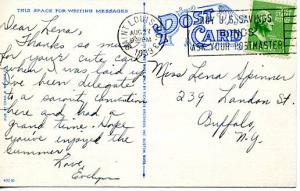 THIS SPACE FOR WRITING MESSAGES
Dear Lena,
Thanks so much
for your cute card
when I was laid up
I've been delegate
to a sorority convention
here and had a
grand time. Hope
you've enjoyed the
summer.
Love,
Evelyn
POST
CARD
SAINT LOUIS
AUG 24
1939
BUY U.S. SAVINGS
BONDS
ASK YOUR POSTMASTER
Miss Lena Skinner
239 Landon St.
Buffalo,
N.Y.